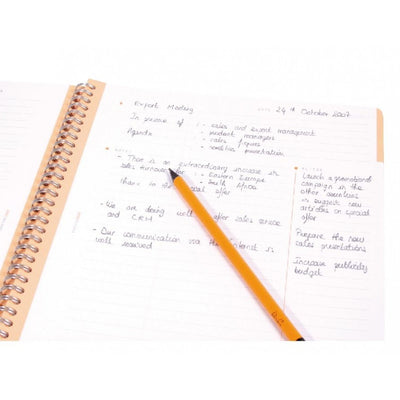 Export Meeting
DATE 24th October 2007
In presence of : - sales and event management
- product managers
Agenda : - sales figures
- creative presentation
- There is an extraordinary increase in
sales :
- Eastern Europe
- South Africa
thanks to the special offer
- We are doing well after sales service
and CRM
- Our communication via the internet is
well received
Launch a promotional
campaign in the
other countries
suggest new
articles on special
offer
Prepare the new
sales presentations
Increase publicity
budget